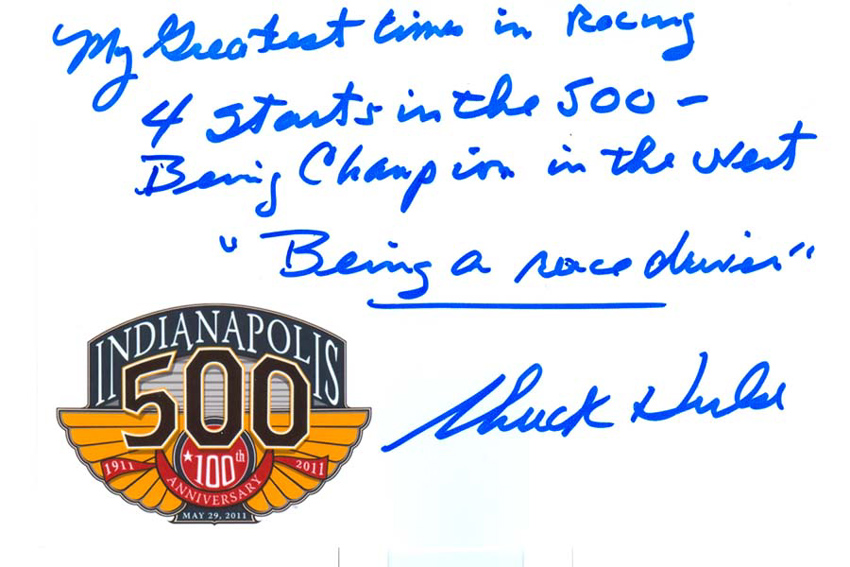 My Greatest times in Racing
4 starts in the 500 -
Being Champion in the West
"Being a race driver"
Chuck Hulse
INDIANAPOLIS
500
1911 100th 2011
ANNIVERSARY
MAY 29, 2011